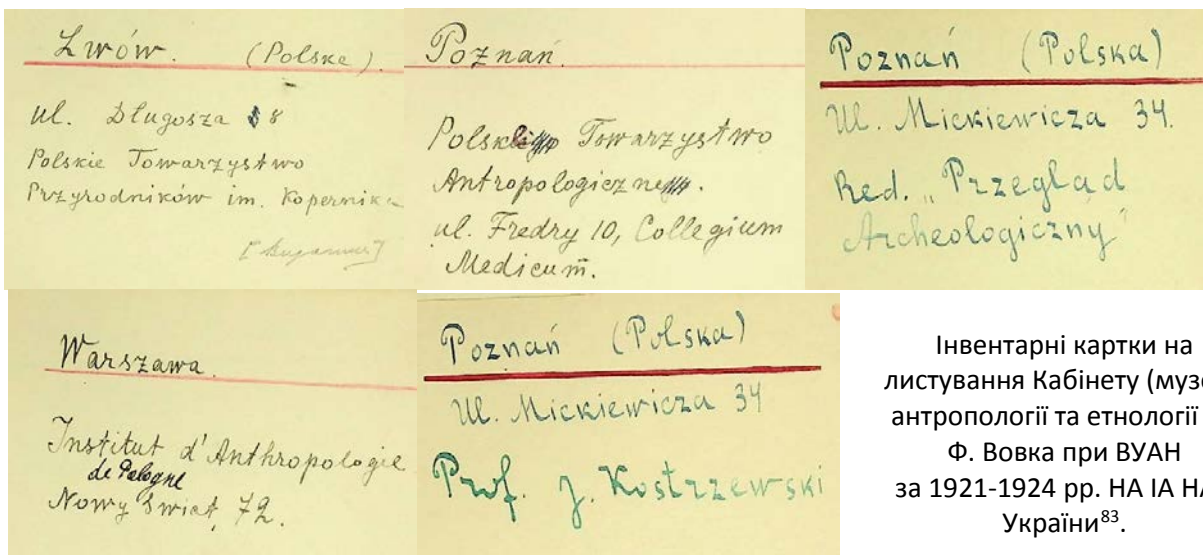 Lwów. (Polske)
ul. Długosza 8
Polskie Towarzystwo
Przyrodników im. Kopernika
Poznań.
Polskie Towarzystwo
Antropologiczne.
ul. Fredry 10, Collegium
Medicum.
Poznań (Polska)
Ul. Mickiewicza 34.
Red. „Przegląd
Archeologiczny"
Warszawa.
Institut d'Anthropologie
de Pologne
Nowy Swiat, 72.
Poznań (Polska)
Ul. Mickiewicza 34
Prof. J. Kostrzewski
Інвентарні картки на
листування Кабінету (музе
антропології та етнології
Ф. Вовка при ВУАН
за 1921-1924 рр. НА ІА НА
України⁸³.